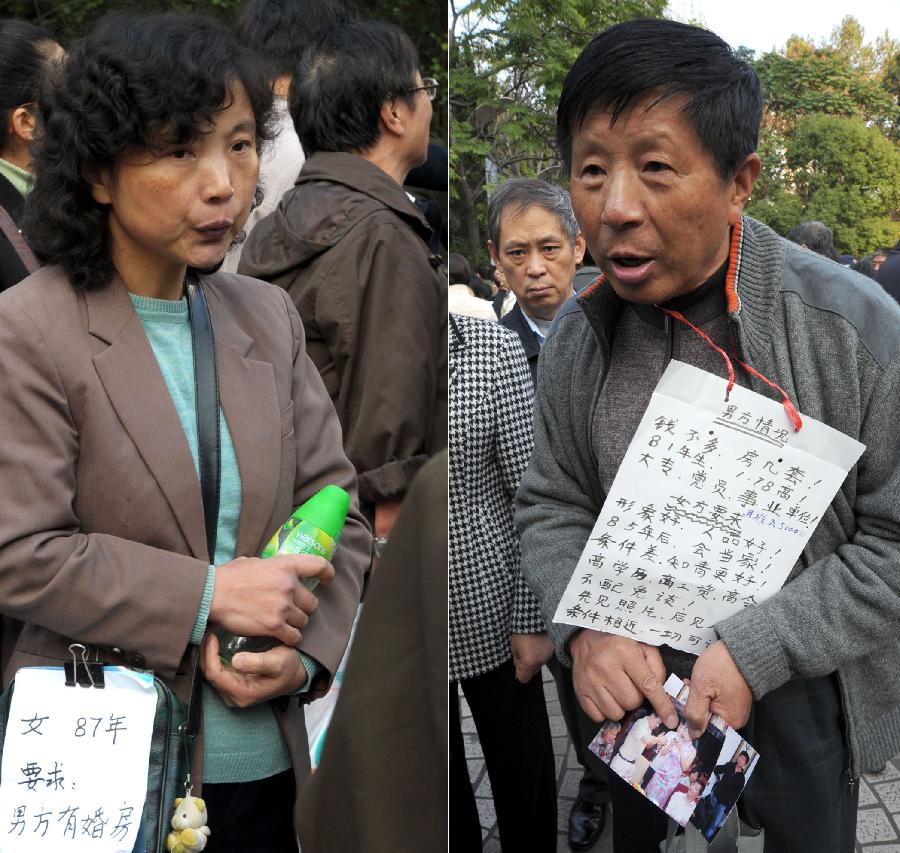 watsons
女 87年
要求:
男方有婚房
男方情况
钱不多,房几套!
81年生,1.78高!
大专,党员,事业单位!
月收入5000元
女方要求
形象好,人品好!
85年后,会当家!
条件差,知青更好!
高学历,高工资,高会
不配免谈!
先见照片,后见
条件相近,一切可